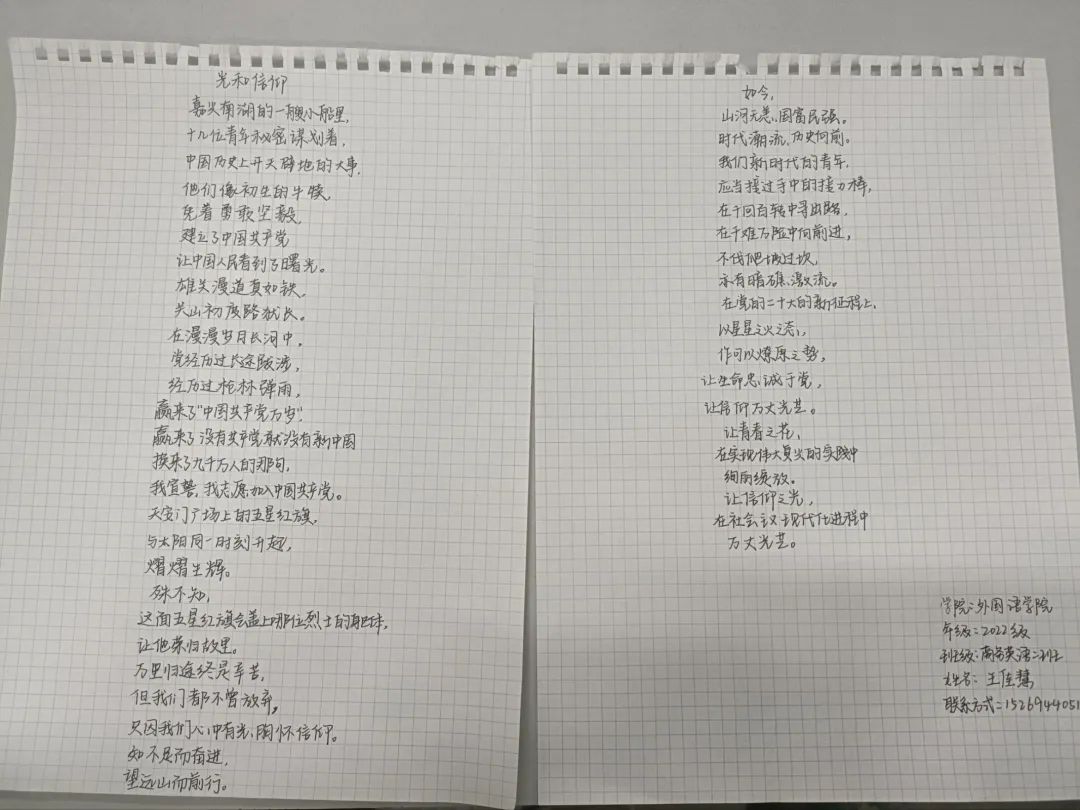 光和信仰
嘉兴南湖的一艘小船里,
十几位青年秘密谋划着,
中国历史上开天辟地的大事,
他们像初生的牛犊,
凭着勇敢坚毅,
建立了中国共产党
让中国人民看到了曙光。
雄关漫道真如铁,
关山初度路犹长。
在漫漫岁月长河中,
党经历过长途跋涉,
经历过枪林弹雨,
赢来了"中国共产党万岁",
赢来了没有共产党就没有新中国
换来了九千万人的那句,
我宣誓,我志愿加入中国共产党。
天安门广场上的五星红旗,
与太阳同一时刻升起,
熠熠生辉。
殊不知,
这面五星红旗会盖上哪位烈士的躯体,
让他荣归故里。
万里归途终是辛苦,
但我们都不曾放弃,
只因我们心中有光,胸怀信仰。
知不足而奋进,
望远山而前行。
如今,
山河无恙、国富民强。
时代潮流、历史向前。
我们新时代的青年,
应当接过手中的接力棒,
在千回百转中寻出路,
在千难万险中向前进,
不伐爬坡过坎,
亦有暗礁、激流。
在党的二十大的新征程上,
以星星之火之态,
作可以燎原之势,
让生命忠诚于党,
让信仰万丈光芒。
让青春之花,
在实现伟大复兴的实践中
绚丽绽放。
让信仰之光,
在社会主义现代化进程中
万丈光芒。
学院:外国语学院
年级:2022级
班级:商务英语二班
姓名:王佳慧
联系方式:1526944051